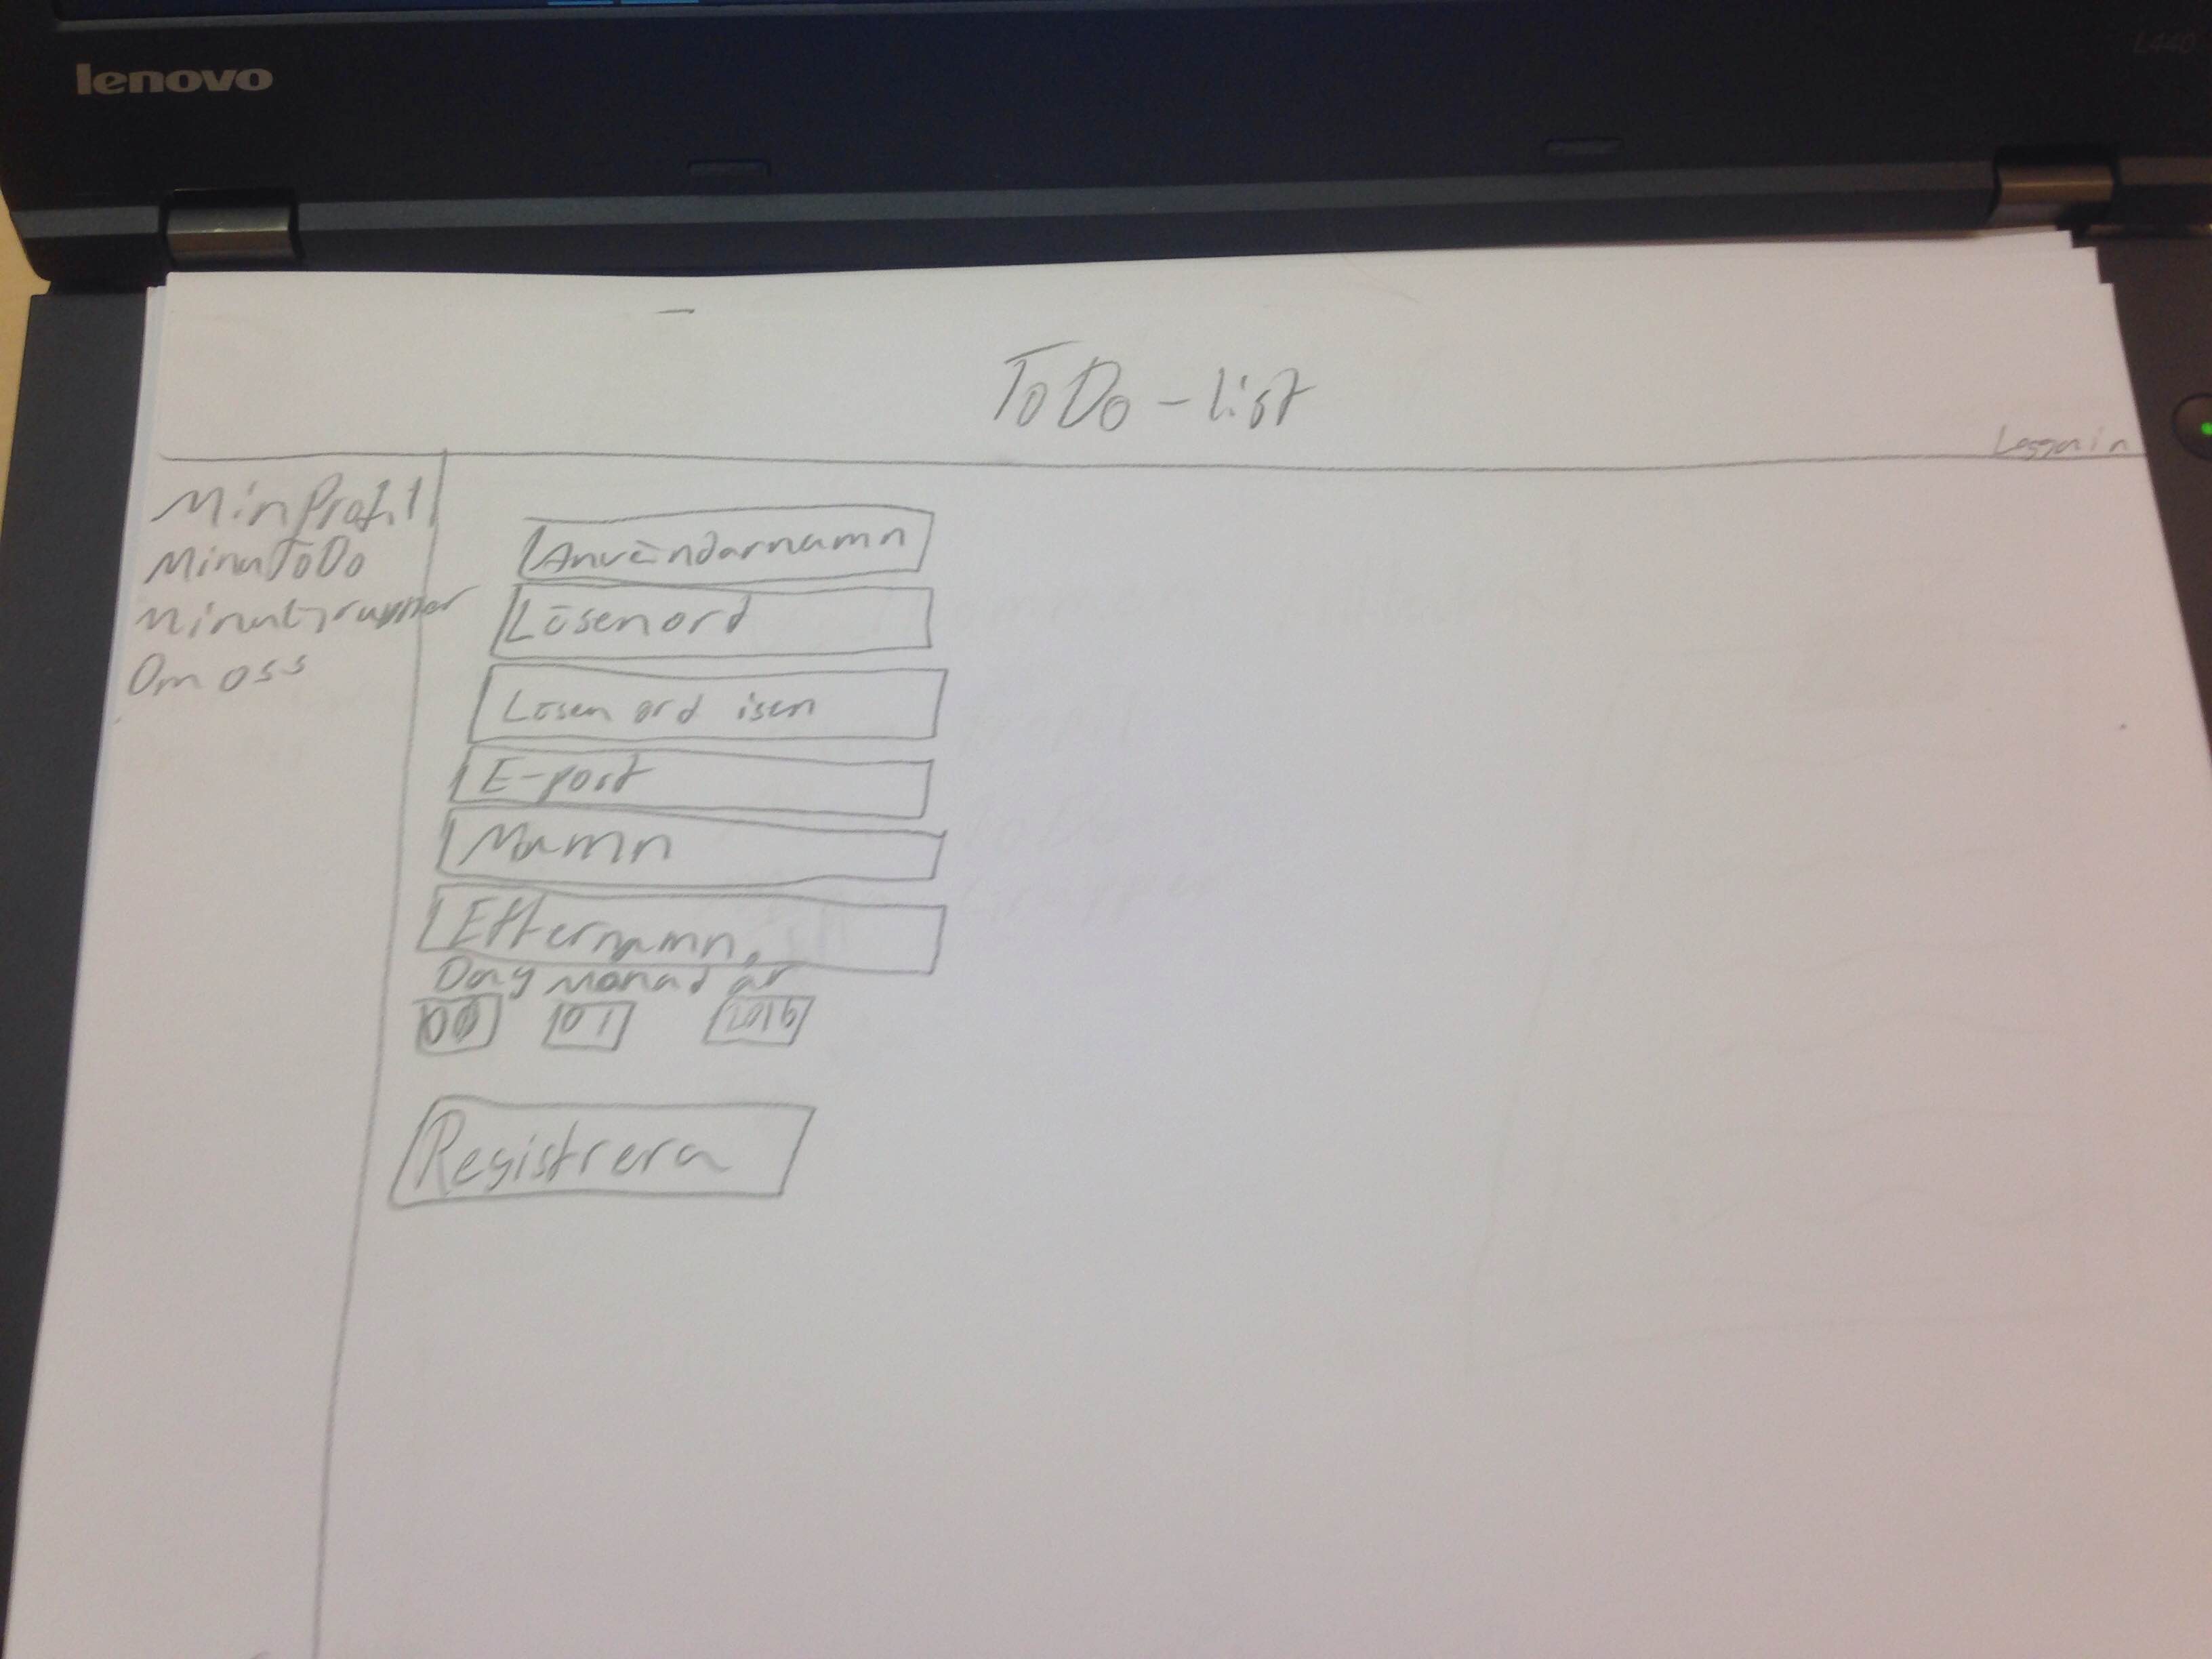 lenovo
L440
ToDo-list
Logga in
Min Profil
Mina ToDo
Mina Grupper
Om oss
Användarnamn
Lösenord
Lösenord igen
E-post
Namn
Efternamn
Dag Månad år
00 01 2016
Registrera